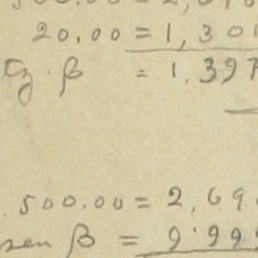 20.00 = 1,301
tg. β = 1,397
500.00 = 2,69
sen β = 9.999